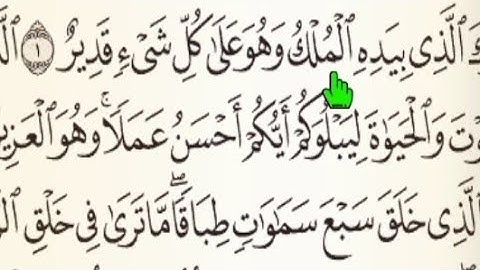 ٱلَّذِى بِيَدِهِ ٱلْمُلْكُ وَهُوَ عَلَىٰ كُلِّ شَىْءٍ قَدِيرٌ ١
وَٱلْحَيَوٰةَ لِيَبْلُوَكُمْ أَيُّكُمْ أَحْسَنُ عَمَلًا ۚ وَهُوَ
ٱلَّذِى خَلَقَ سَبْعَ سَمَٰوَٰتٍ طِبَاقًا ۖ مَّا تَرَىٰ فِى خَلْقِ